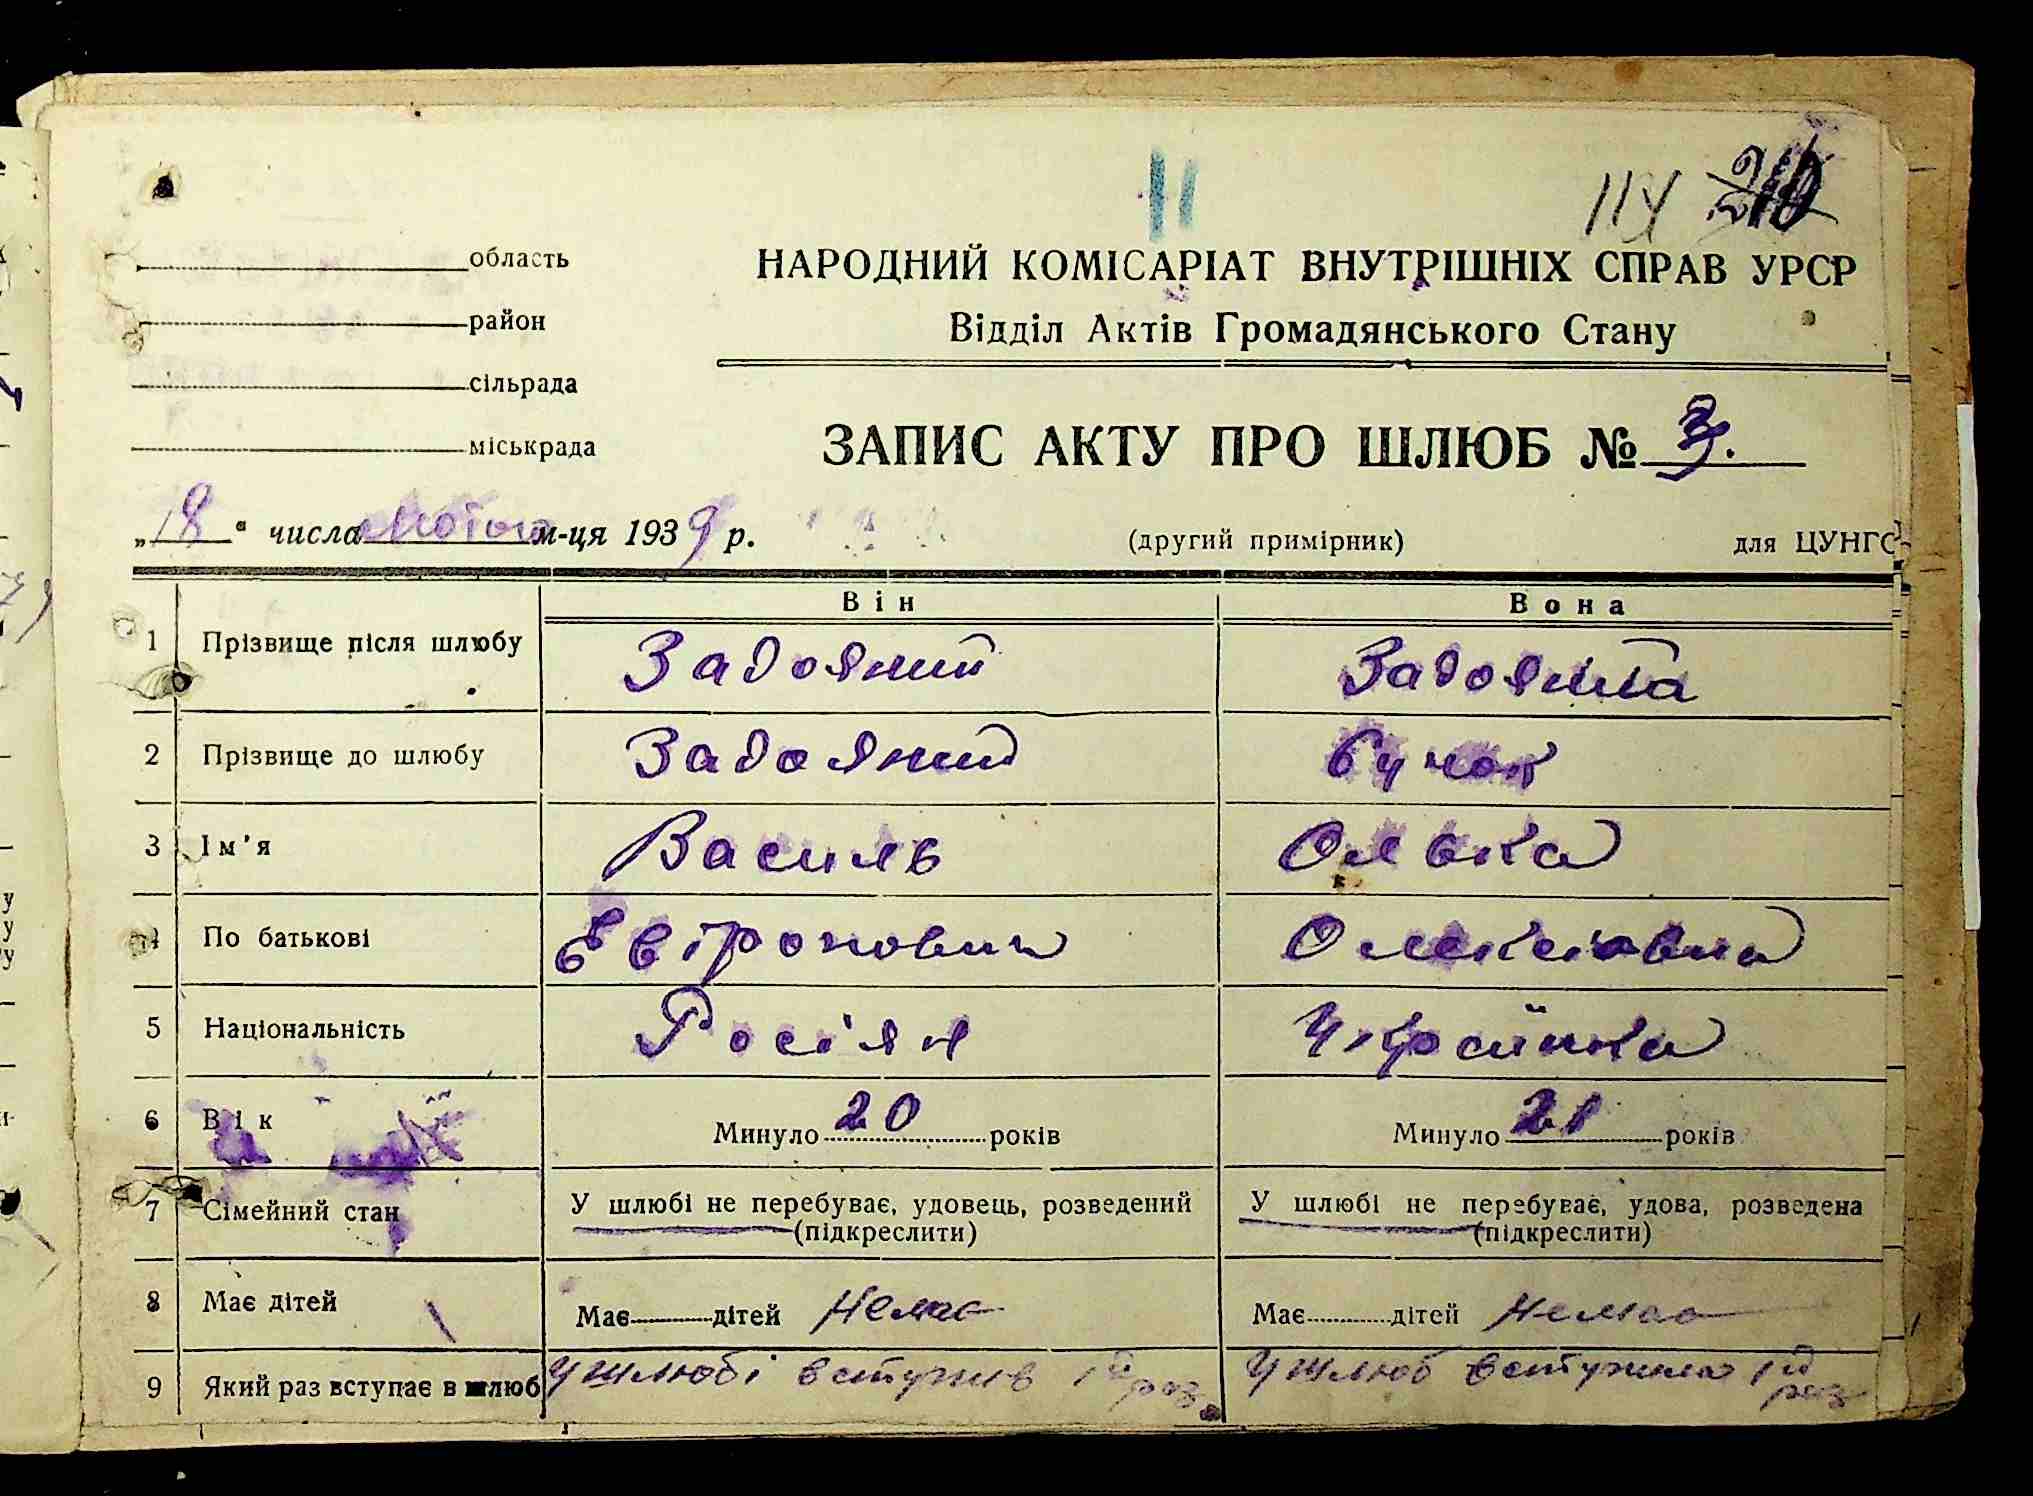 11
114 210
область
район
сільрада
міськрада
НАРОДНИЙ КОМІСАРІАТ ВНУТРІШНІХ СПРАВ УРСР
Відділ Актів Громадянського Стану
ЗАПИС АКТУ ПРО ШЛЮБ № 3.
„18“ числа лютого м-ця 1939 р.
(другий примірник) для ЦУНГО
Він Вона
1 Прізвище після шлюбу Задояний Задояна
2 Прізвище до шлюбу Задояний
3 Ім'я Василь Олька
4 По батькові Евтропович Олексіовна
5 Національність Росіян Українка
6 Вік Минуло 20 років Минуло 21 років
7 Сімейний стан У шлюбі не перебуває, удовець, розведений У шлюбі не перебуває, удова, розведена
(підкреслити) (підкреслити)
8 Має дітей Має дітей Немає Має дітей Немає
9 Який раз вступає в шлюб У шлюбі вступив 1й раз У шлюб вступила 1й раз